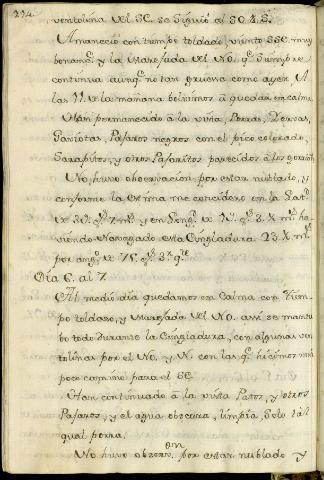 224
ventolina del SE. se siguió al SO. 4. S.
Amanecio con tiempo toldado, viento SSE. muy
bonanc.e y la Marejada del NO. q.e siempre
continua aunq.e no tan gruesa como ayer. A
las 11 de la mañana bolvimos à quedar en calma
Han permanecido à la vista, Porras, Yervas,
Gaviotas, Pajaros negros con el pico colorado,
Sarapitos, y otros Pajaritos parecidos à los
No huvo observacion por estar nublado, y
conforme la estima me considero en la Lat.d
de 7 m.s y en Long.d de ha
viendo Navegado esta Cingladura m.s
por ang.o de
Dia 6. al 7.
Al medio dia quedamos en Calma con Tiem
po toldado, y Marejada del NO. assi se mantu
bo todo durante la Cingladura, con algunas ven
tolinas por el NO. y N. con las q.e hicimos mui
poco camino para el SE.
Han continuado à la vista Patos, y otros
Pajaros, y el agua obscura, limpia, solo tal
qual porra.
No huvo observ.on por estar nublado y